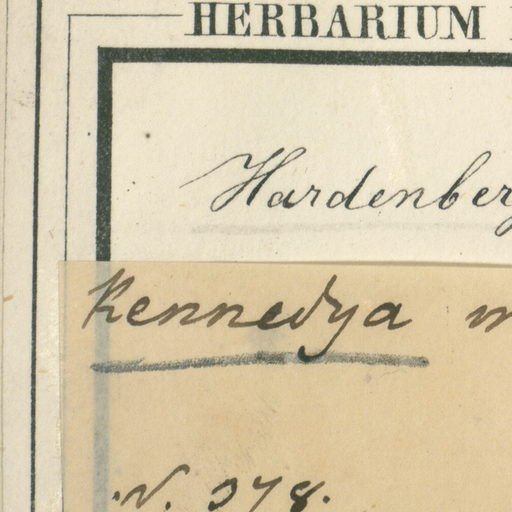 HERBARIUM
Hardenber
Kennedya m
N. 378.